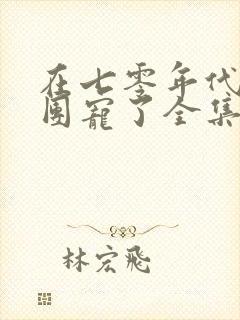 在七零年代
团宠了全集
林宏飛